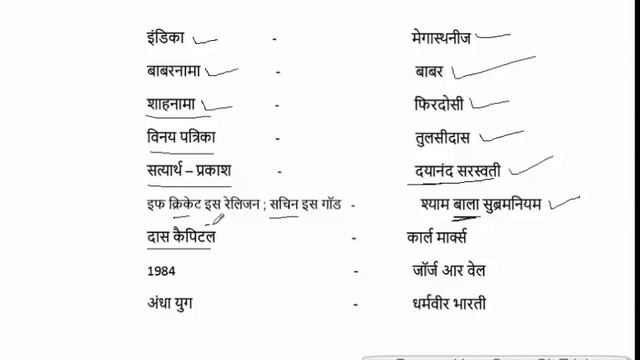 इंडिका - मेगास्थनीज
बाबरनामा - बाबर
शाहनामा - फिरदोसी
विनय पत्रिका - तुलसीदास
सत्यार्थ – प्रकाश - दयानंद सरस्वती
इफ क्रिकेट इस रेलिजन ; सचिन इस गॉड - श्याम बाला सुब्रमनियम
दास कैपिटल - कार्ल मार्क्स
1984 - जॉर्ज आर वेल
अंधा युग - धर्मवीर भारती